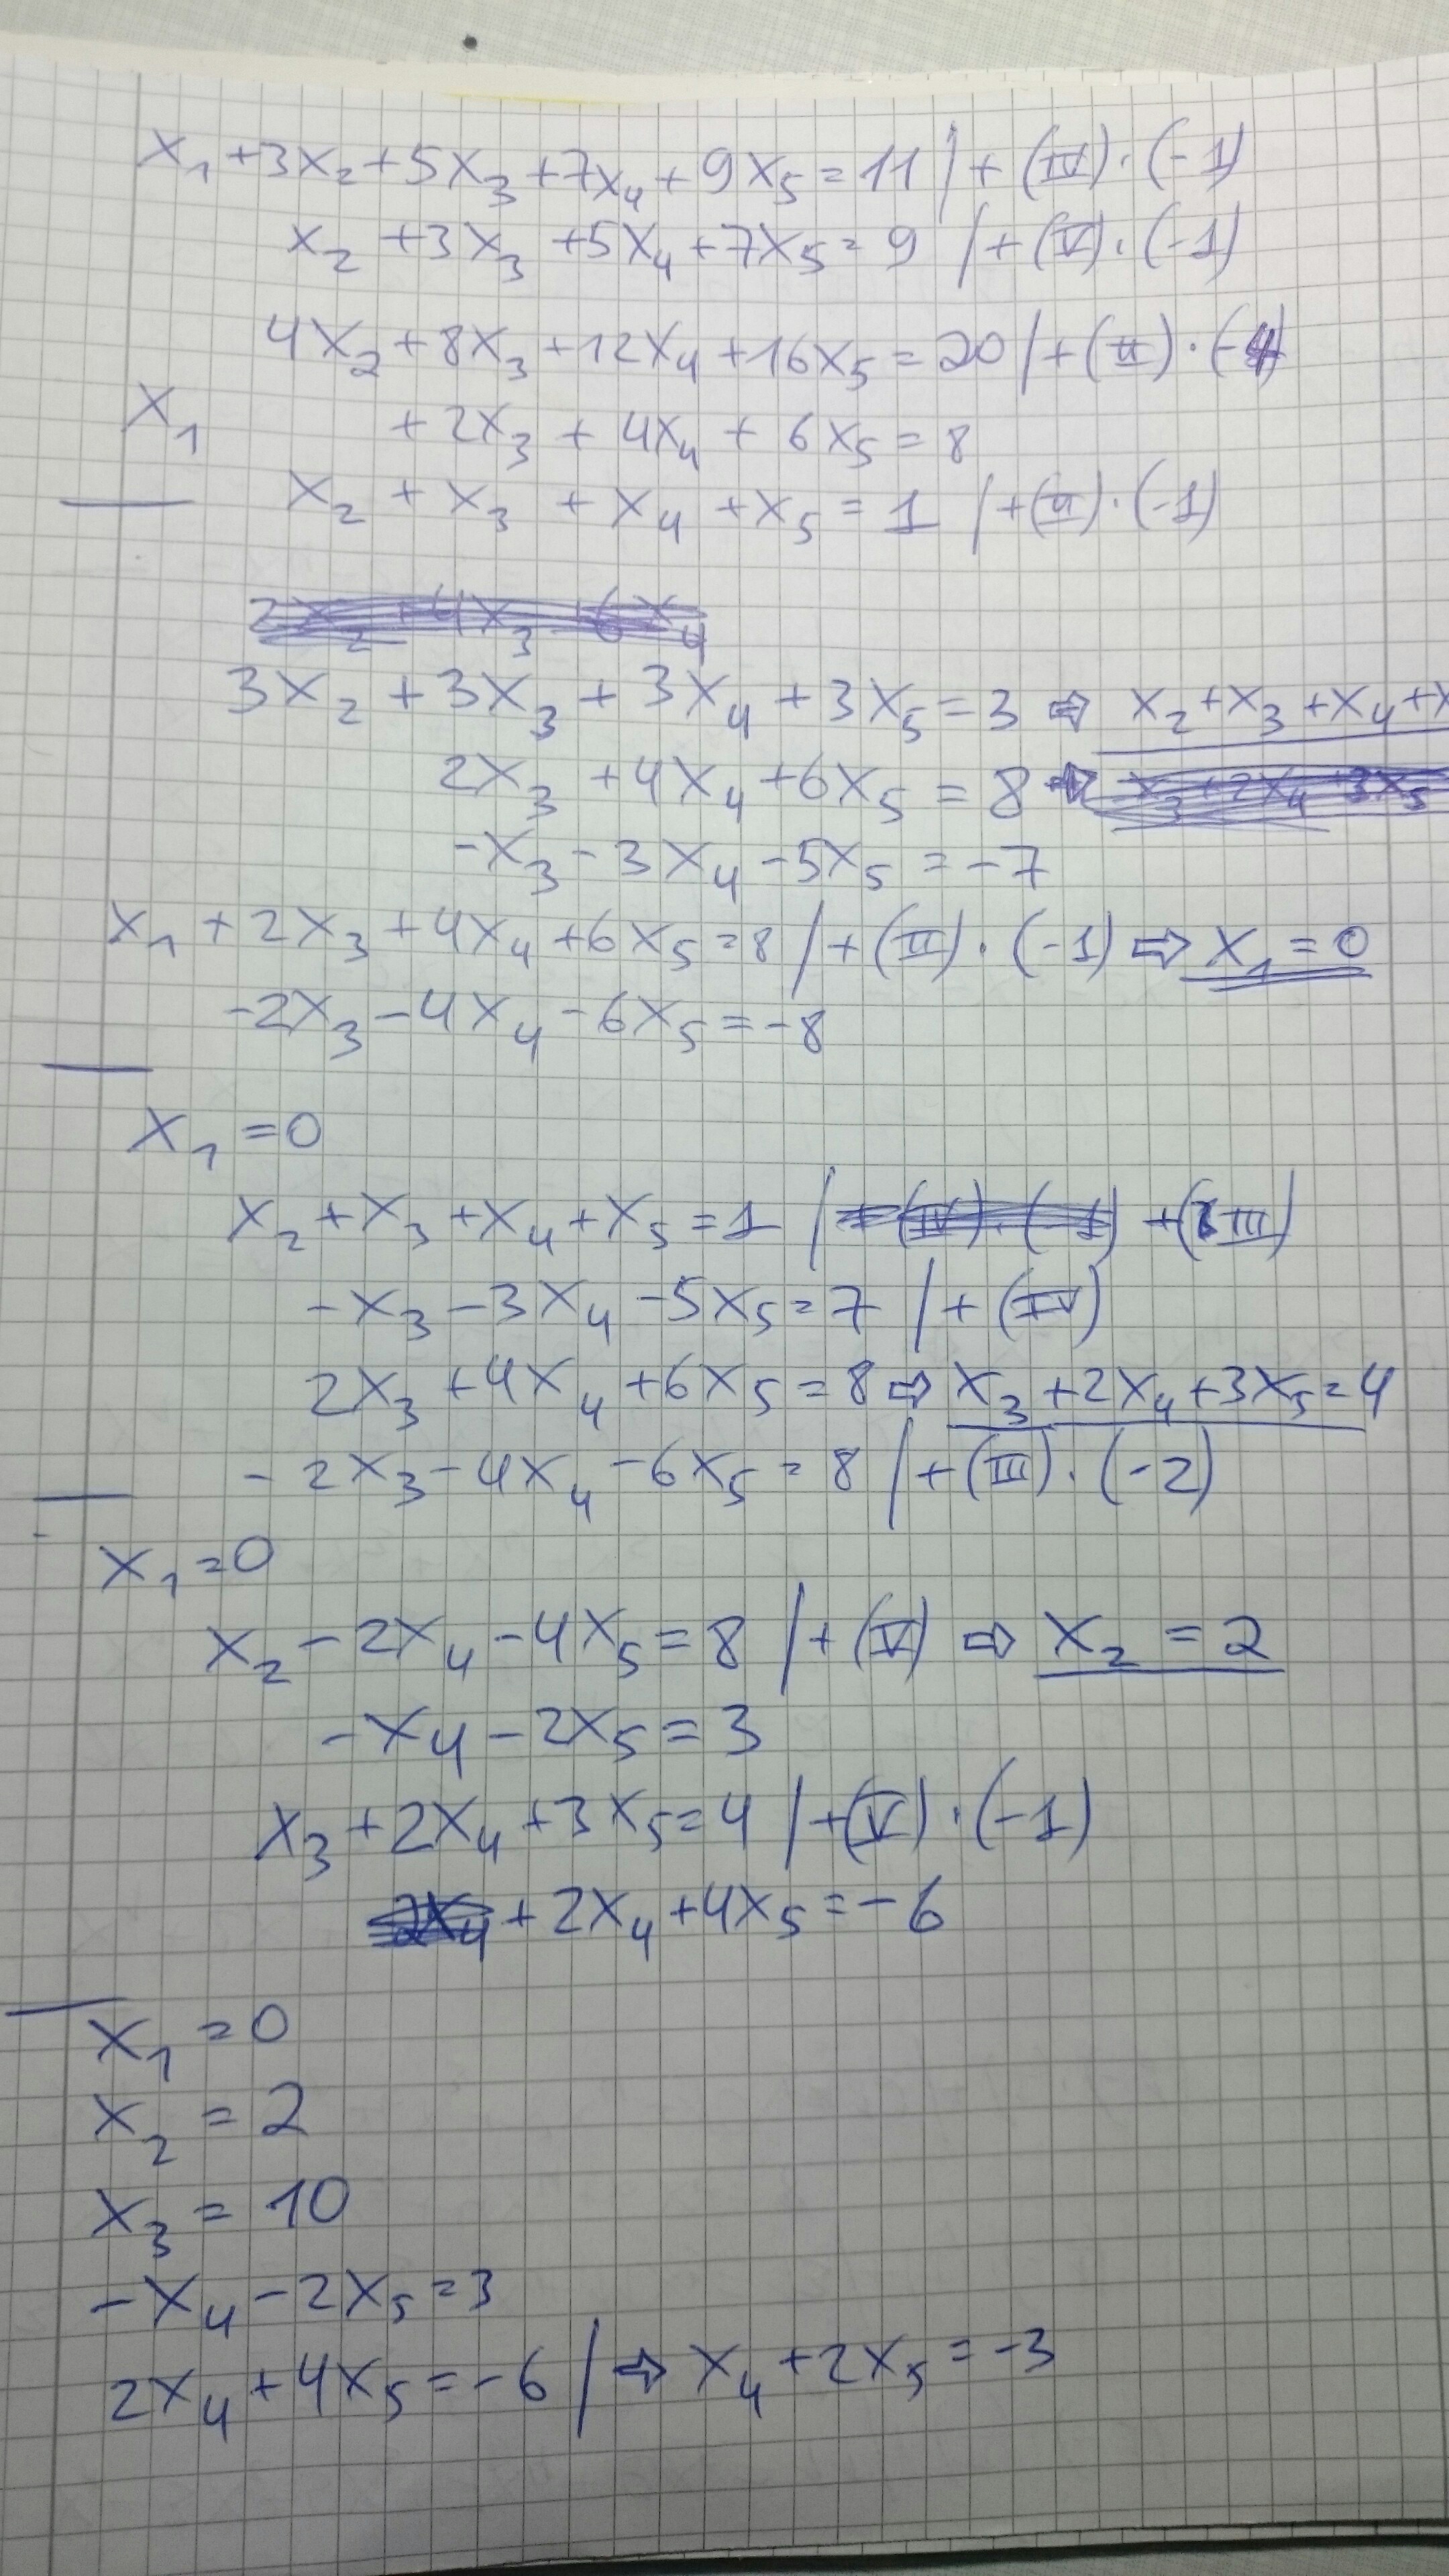 x₁ + 3x₂ + 5x₃ + 7x₄ + 9x₅ = 11 | + (IV) · (-1)
x₂ + 3x₃ + 5x₄ + 7x₅ = 9 | + (V) · (-1)
4x₂ + 8x₃ + 12x₄ + 16x₅ = 20 | + (II) · (-4)
x₁ + 2x₃ + 4x₄ + 6x₅ = 8
x₂ + x₃ + x₄ + x₅ = 1 | + (II) · (-1)
2x₂ + 4x₃ 6x₄
3x₂ + 3x₃ + 3x₄ + 3x₅ = 3 ⇒ x₂ + x₃ + x₄ + x
2x₃ + 4x₄ + 6x₅ = 8 ⇒ x₃ + 2x₄ + 3x₅
-x₃ - 3x₄ - 5x₅ = -7
x₁ + 2x₃ + 4x₄ + 6x₅ = 8 | + (II) · (-1) ⇒ x₁ = 0
-2x₃ - 4x₄ - 6x₅ = -8
x₁ = 0
x₂ + x₃ + x₄ + x₅ = 1 | + (IV) · (-1) + (III)
-x₃ - 3x₄ - 5x₅ = 7 | + (IV)
2x₃ + 4x₄ + 6x₅ = 8 ⇒ x₃ + 2x₄ + 3x₅ = 4
-2x₃ - 4x₄ - 6x₅ = 8 | + (III) · (-2)
x₁ = 0
x₂ - 2x₄ - 4x₅ = 8 | + (V) ⇒ x₂ = 2
-x₄ - 2x₅ = 3
x₃ + 2x₄ + 3x₅ = 4 | + (V) · (-1)
2x₄ + 2x₄ + 4x₅ = -6
x₁ = 0
x₂ = 2
x₃ = 10
-x₄ - 2x₅ = 3
2x₄ + 4x₅ = -6 | ⇒ x₄ + 2x₅ = -3